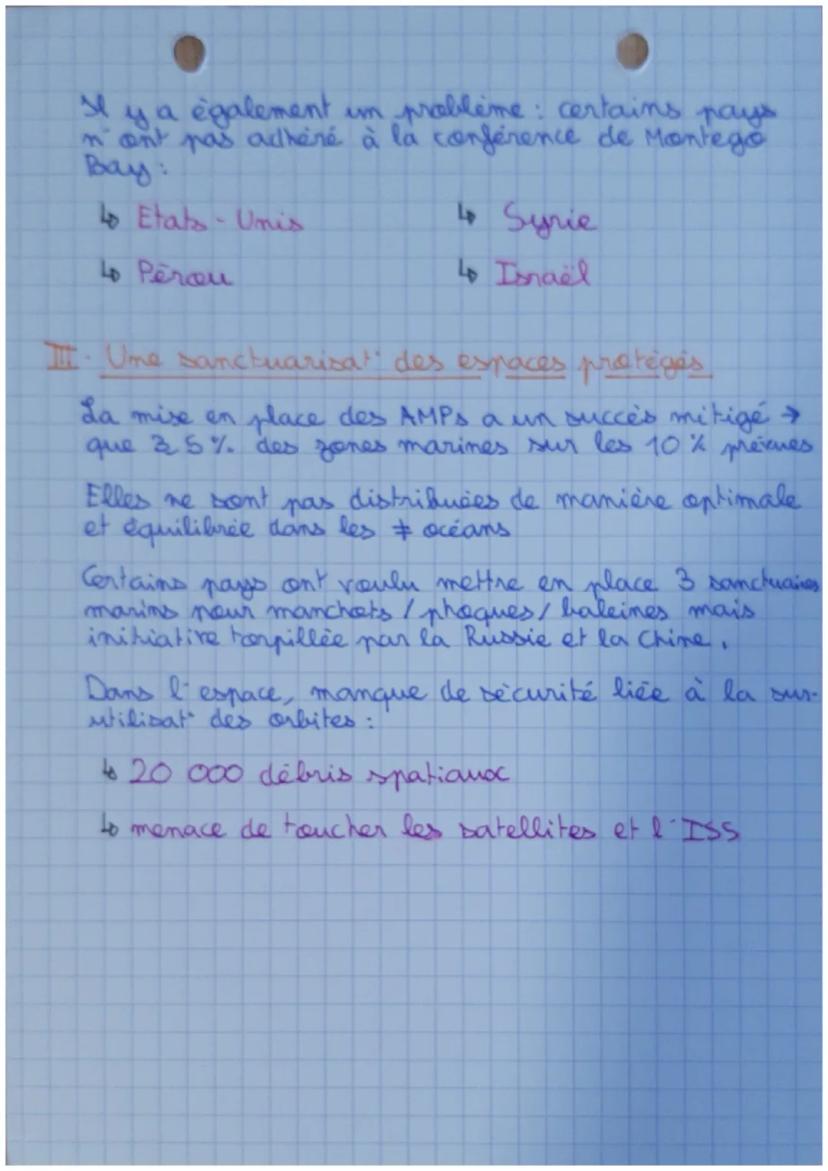 Il y a également un problème : certains pays
n'ont pas adhéré à la conférence de Montego
Bay :
↳ Etats-Unis
↳ Syrie
↳ Pérou
↳ Israël
III. Une sanctuarisat° des espaces protégés
La mise en place des AMPs a un succès mitigé →
que 5% des zones marines sur les 10% prévues
Elles ne sont pas distribuées de manière optimale
et équilibrée dans les ≠ océans
Certains pays ont voulu mettre en place 3 sanctuaires
marins pour manchots / phoques / baleines mais
initiative torpillée par la Russie et la Chine.
Dans l'espace, manque de sécurité liée à la sur-
utilisat° des orbites :
↳ 20 000 débris spatiaux
↳ menace de toucher les satellites et l'ISS